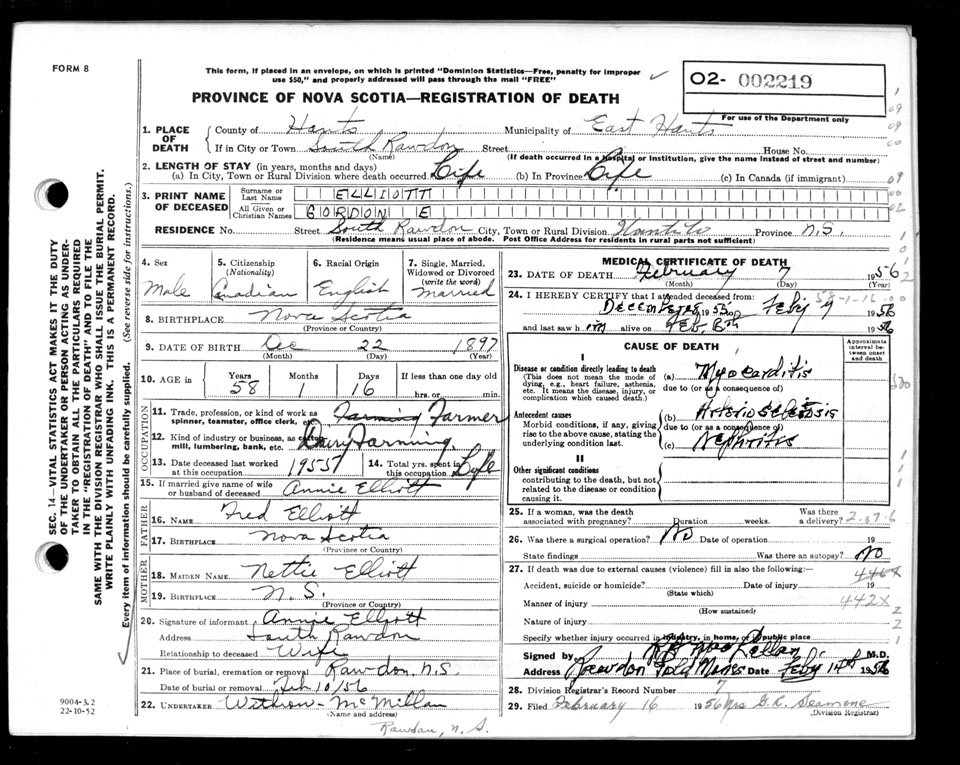 FORM 8
This form, if placed in an envelope, on which is printed "Dominion Statistics—Free, penalty for improper
use $50," and properly addressed will pass through the mail "FREE"
O2- 002219
For use of the Department only
PROVINCE OF NOVA SCOTIA—REGISTRATION OF DEATH
1. PLACE OF DEATH
County of Hants Municipality of East Hants
If in City or Town South Rawdon Street House No.
(Name) (If death occurred in a Hospital or Institution, give the name instead of street and number)
2. LENGTH OF STAY (in years, months and days)
(a) In City, Town or Rural Division where death occurred Life (b) In Province Life (c) In Canada (if immigrant)
3. PRINT NAME OF DECEASED
Surname or Last Name ELLIOTT
All Given or Christian Names GORDON E
RESIDENCE No. Street South Rawdon City, Town or Rural Division Hants Co Province N.S.
(Residence means usual place of abode. Post Office Address for residents in rural parts not sufficient)
4. Sex
Male
5. Citizenship
(Nationality)
Canadian
6. Racial Origin
English
7. Single, Married, Widowed or Divorced
(write the word)
Married
8. BIRTHPLACE Nova Scotia
(Province or Country)
9. DATE OF BIRTH Dec 22 1897
(Month) (Day) (Year)
10. AGE in Years 58 Months 1 Days 16 If less than one day old
hrs. or min.
OCCUPATION
11. Trade, profession, or kind of work as spinner, teamster, office clerk, etc. Farming Farmer
12. Kind of industry or business, as cotton mill, lumbering, bank, etc. Dairy Farming
13. Date deceased last worked at this occupation 1955
14. Total yrs. spent in this occupation Life
15. If married give name of wife or husband of deceased Annie Elliott
FATHER
16. NAME Fred Elliott
17. BIRTHPLACE Nova Scotia
(Province or Country)
MOTHER
18. MAIDEN NAME Nettie Elliott
19. BIRTHPLACE N.S.
(Province or Country)
20. Signature of informant Annie Elliott
Address South Rawdon
Relationship to deceased Wife
21. Place of burial, cremation or removal Rawdon N.S.
Date of burial or removal Feb 10/56
22. UNDERTAKER Withrow - McMillan
(Name and address)
Rawdon, N.S.
MEDICAL CERTIFICATE OF DEATH
23. DATE OF DEATH February 7 1956
(Month) (Day) (Year)
24. I HEREBY CERTIFY that I attended deceased from:
58-1-16
December 1955 to Feby 7 1956
and last saw him alive on Feb. 1956
CAUSE OF DEATH
Approximate interval between onset and death
I
Disease or condition directly leading to death
(This does not mean the mode of dying, e.g., heart failure, asthenia, etc. It means the disease, injury, or complication which caused death.)
(a) Myocarditis
due to (or as a consequence of)
Antecedent causes
Morbid conditions, if any, giving rise to the above cause, stating the underlying condition last.
(b) Arteriosclerosis
due to (or as a consequence of)
(c) Nephritis
II
Other significant conditions contributing to the death, but not related to the disease or condition causing it.
25. If a woman, was the death associated with pregnancy? Duration weeks. Was there a delivery?
26. Was there a surgical operation? No Date of operation 19
State findings Was there an autopsy? No
27. If death was due to external causes (violence) fill in also the following:—
Accident, suicide or homicide? Date of injury 19
(State which)
Manner of injury 442X
(How sustained)
Nature of injury
Specify whether injury occurred in industry, in home, or in public place
Signed by MacLellan M.D.
Address Rawdon Gold Mines Date Feby 14th 1956
28. Division Registrar's Record Number 7
29. Filed February 16 1956 Mrs G.R. Seamone
(Division Registrar)
SEC. 14—VITAL STATISTICS ACT MAKES IT THE DUTY
OF THE UNDERTAKER OR PERSON ACTING AS UNDER-
TAKER TO OBTAIN ALL THE PARTICULARS REQUIRED
IN THE "REGISTRATION OF DEATH" AND TO FILE THE
SAME WITH THE DIVISION REGISTRAR WHO SHALL ISSUE THE BURIAL PERMIT.
WRITE PLAINLY WITH UNFADING INK. THIS IS A PERMANENT RECORD.
Every item of information should be carefully supplied. (See reverse side for instructions.)
9004-3.2
22-10-52